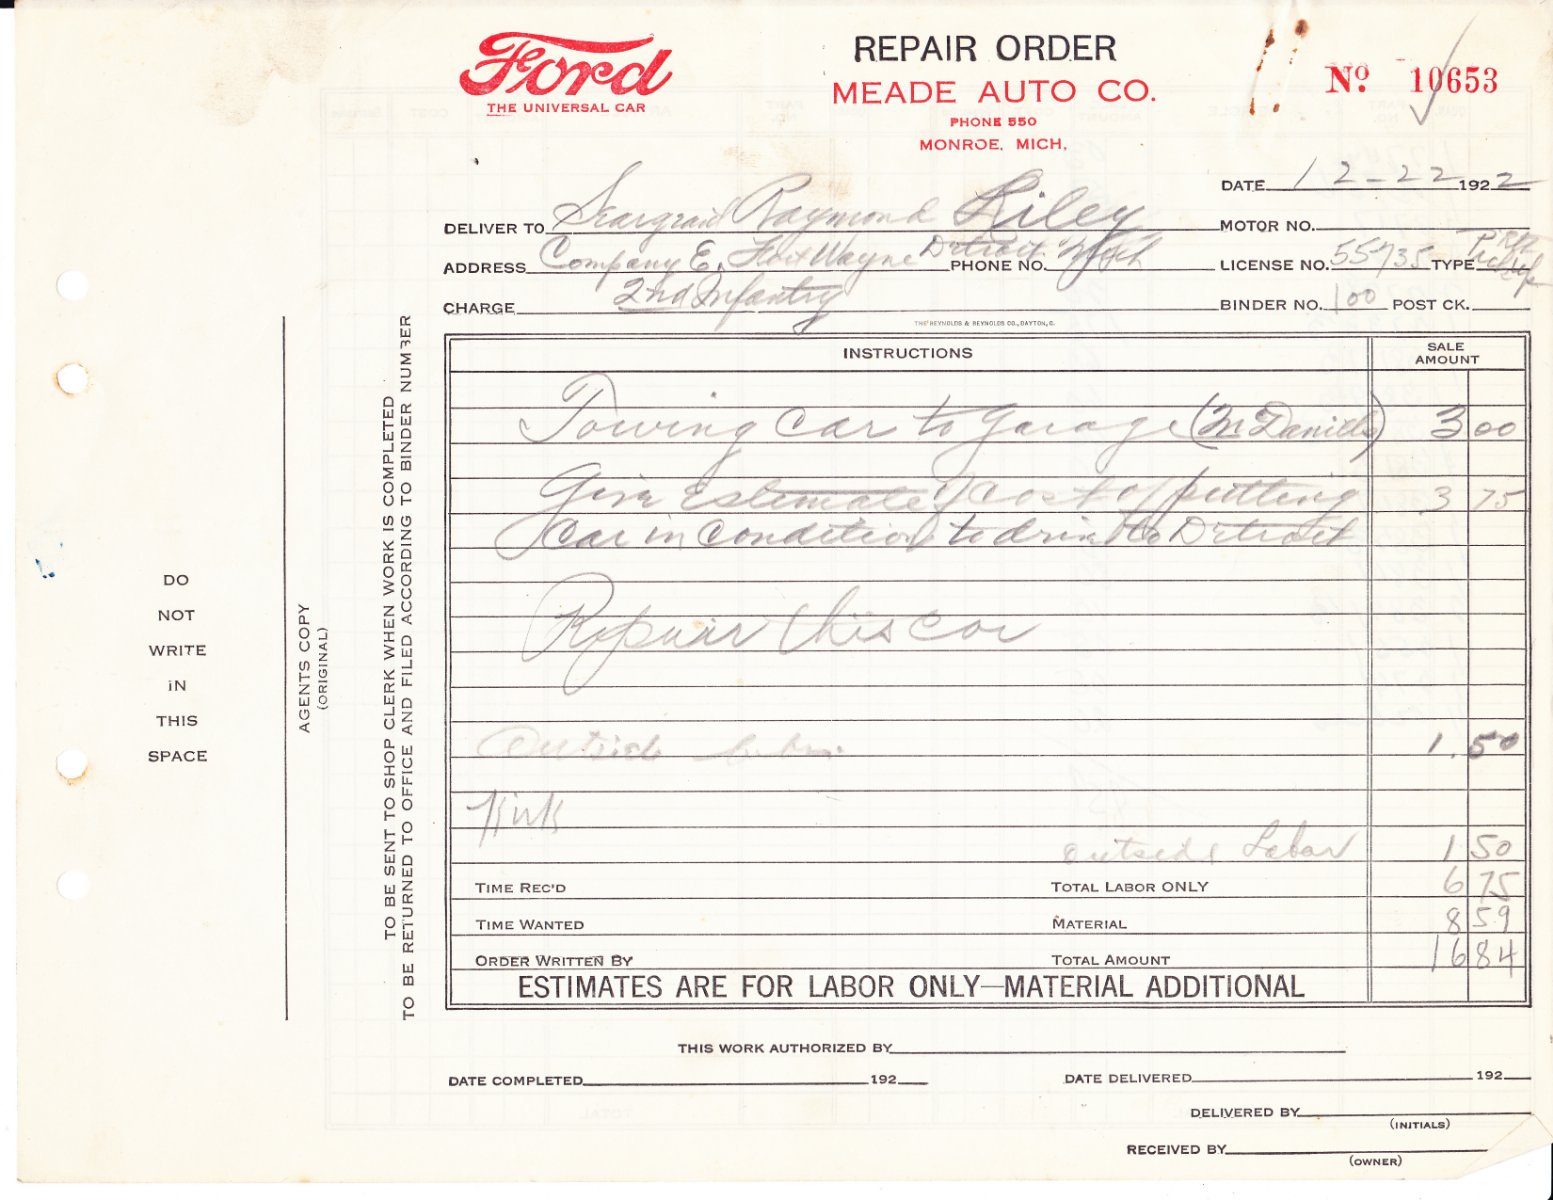 Ford
THE UNIVERSAL CAR
REPAIR ORDER
MEADE AUTO CO.
PHONE 550
MONROE, MICH.
No. 10653
DATE 12-22 1922
DELIVER TO Seargeant Raymond Riley
MOTOR NO.
ADDRESS Company E. Fort Wayne Detroit Mich PHONE NO.
LICENSE NO. 55735 TYPE
CHARGE 2nd Infantry
BINDER NO. 100 POST CK.
THE REYNOLDS & REYNOLDS CO., DAYTON, O.
INSTRUCTIONS SALE AMOUNT
Towing car to garage (McDaniels) 3 00
Give Estimate of cost of putting 3 75
car in condition to drive to Detroit
Repair this car
Outside Labor 1.50
Kirk
Outside Labor 1 50
TIME REC'D TOTAL LABOR ONLY 6 75
TIME WANTED MATERIAL 8 59
ORDER WRITTEN BY TOTAL AMOUNT 16 84
ESTIMATES ARE FOR LABOR ONLY—MATERIAL ADDITIONAL
THIS WORK AUTHORIZED BY
DATE COMPLETED 192
DATE DELIVERED 192
DELIVERED BY
(INITIALS)
RECEIVED BY
(OWNER)
DO
NOT
WRITE
IN
THIS
SPACE
AGENTS COPY
(ORIGINAL)
TO BE SENT TO SHOP CLERK WHEN WORK IS COMPLETED
TO BE RETURNED TO OFFICE AND FILED ACCORDING TO BINDER NUMBER